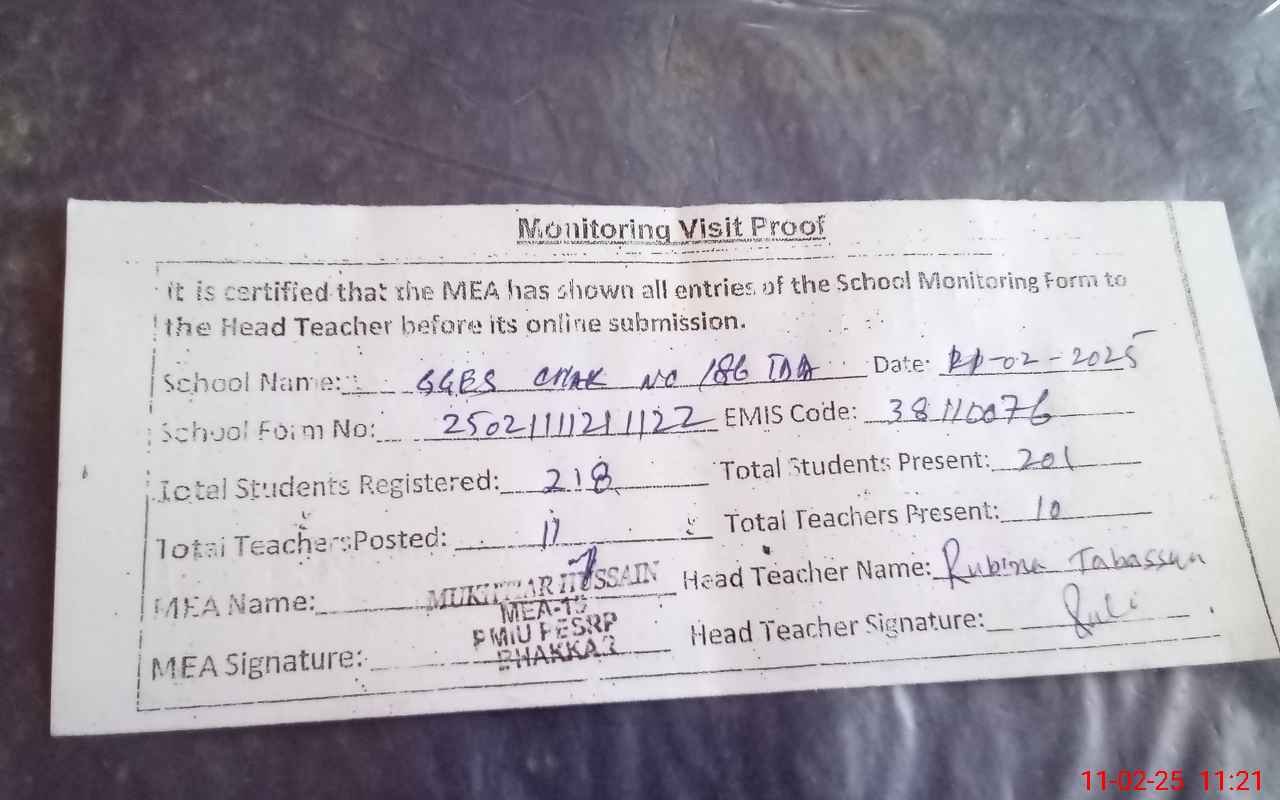 Monitoring Visit Proof
it is certified that the MEA has shown all entries of the School Monitoring Form to
the Head Teacher before its online submission.
School Name: GGES CHAK NO 186 TDA Date: 11-02-2025
School Form No: 25021111211122 EMIS Code: 38110076
Total Students Registered: 218 Total Students Present: 201
Total Teachers Posted: 11 Total Teachers Present: 10
MEA Name: MUKHTAR HUSSAIN Head Teacher Name: Rubina Tabassum
MEA-15
PMIU PESRP
BHAKKAR
MEA Signature: Head Teacher Signature:
11-02-25 11:21